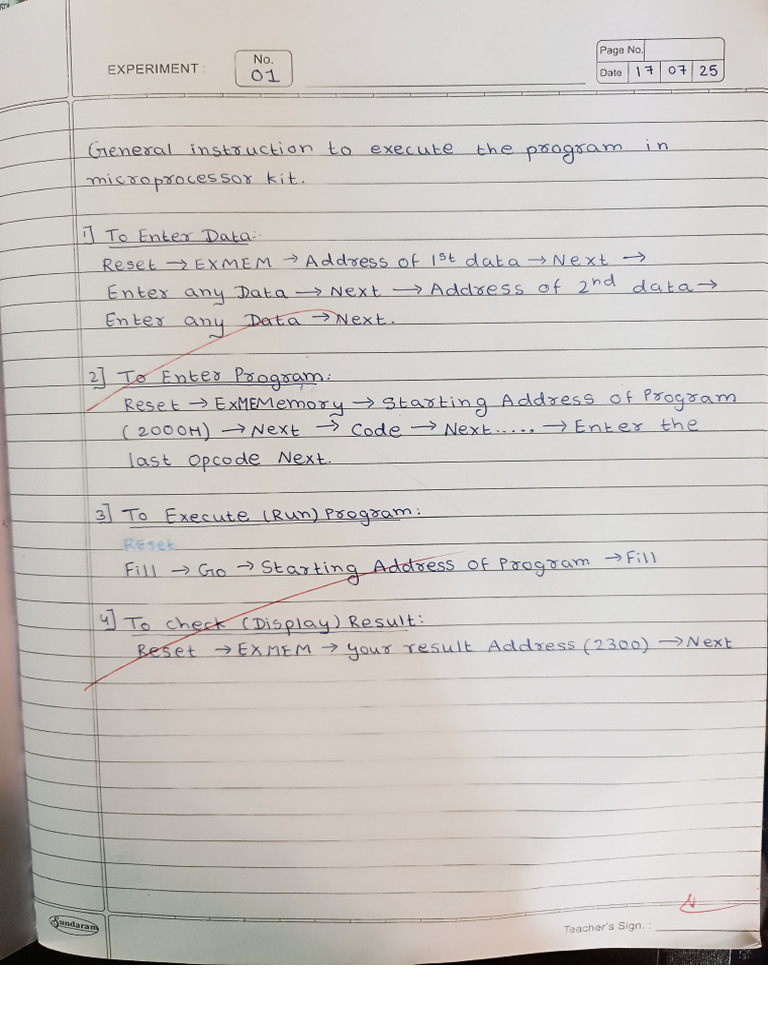 EXPERIMENT :
No.
01
Page No.
Date 17 07 25
General instruction to execute the program in
microprocessor kit.
1] To Enter Data:
Reset → EXMEM → Address of 1st data → Next →
Enter any Data → Next → Address of 2nd data →
Enter any Data → Next.
2] To Enter Program:
Reset → EXMEMemory → Starting Address of Program
(2000H) → Next → Code → Next..... → Enter the
last Opcode Next.
3] To Execute (Run) Program:
Reset
Fill → Go → Starting Address of Program → Fill
4] To check (Display) Result:
Reset → EXMEM → your result Address (2300) → Next
Sundaram
Teacher's Sign. :